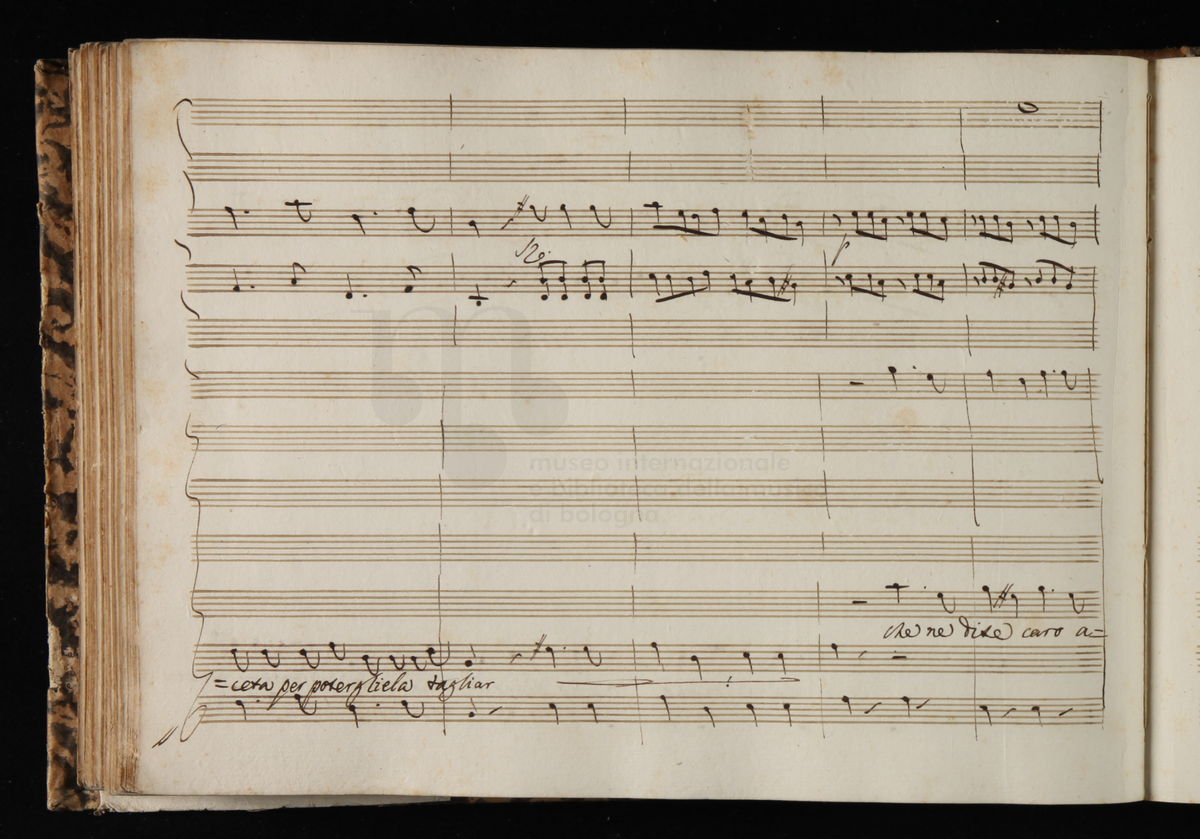 p
museo internazionale
e biblioteca della musica
di bologna
che ne dite caro a=
=ceta per potergliela tagliar